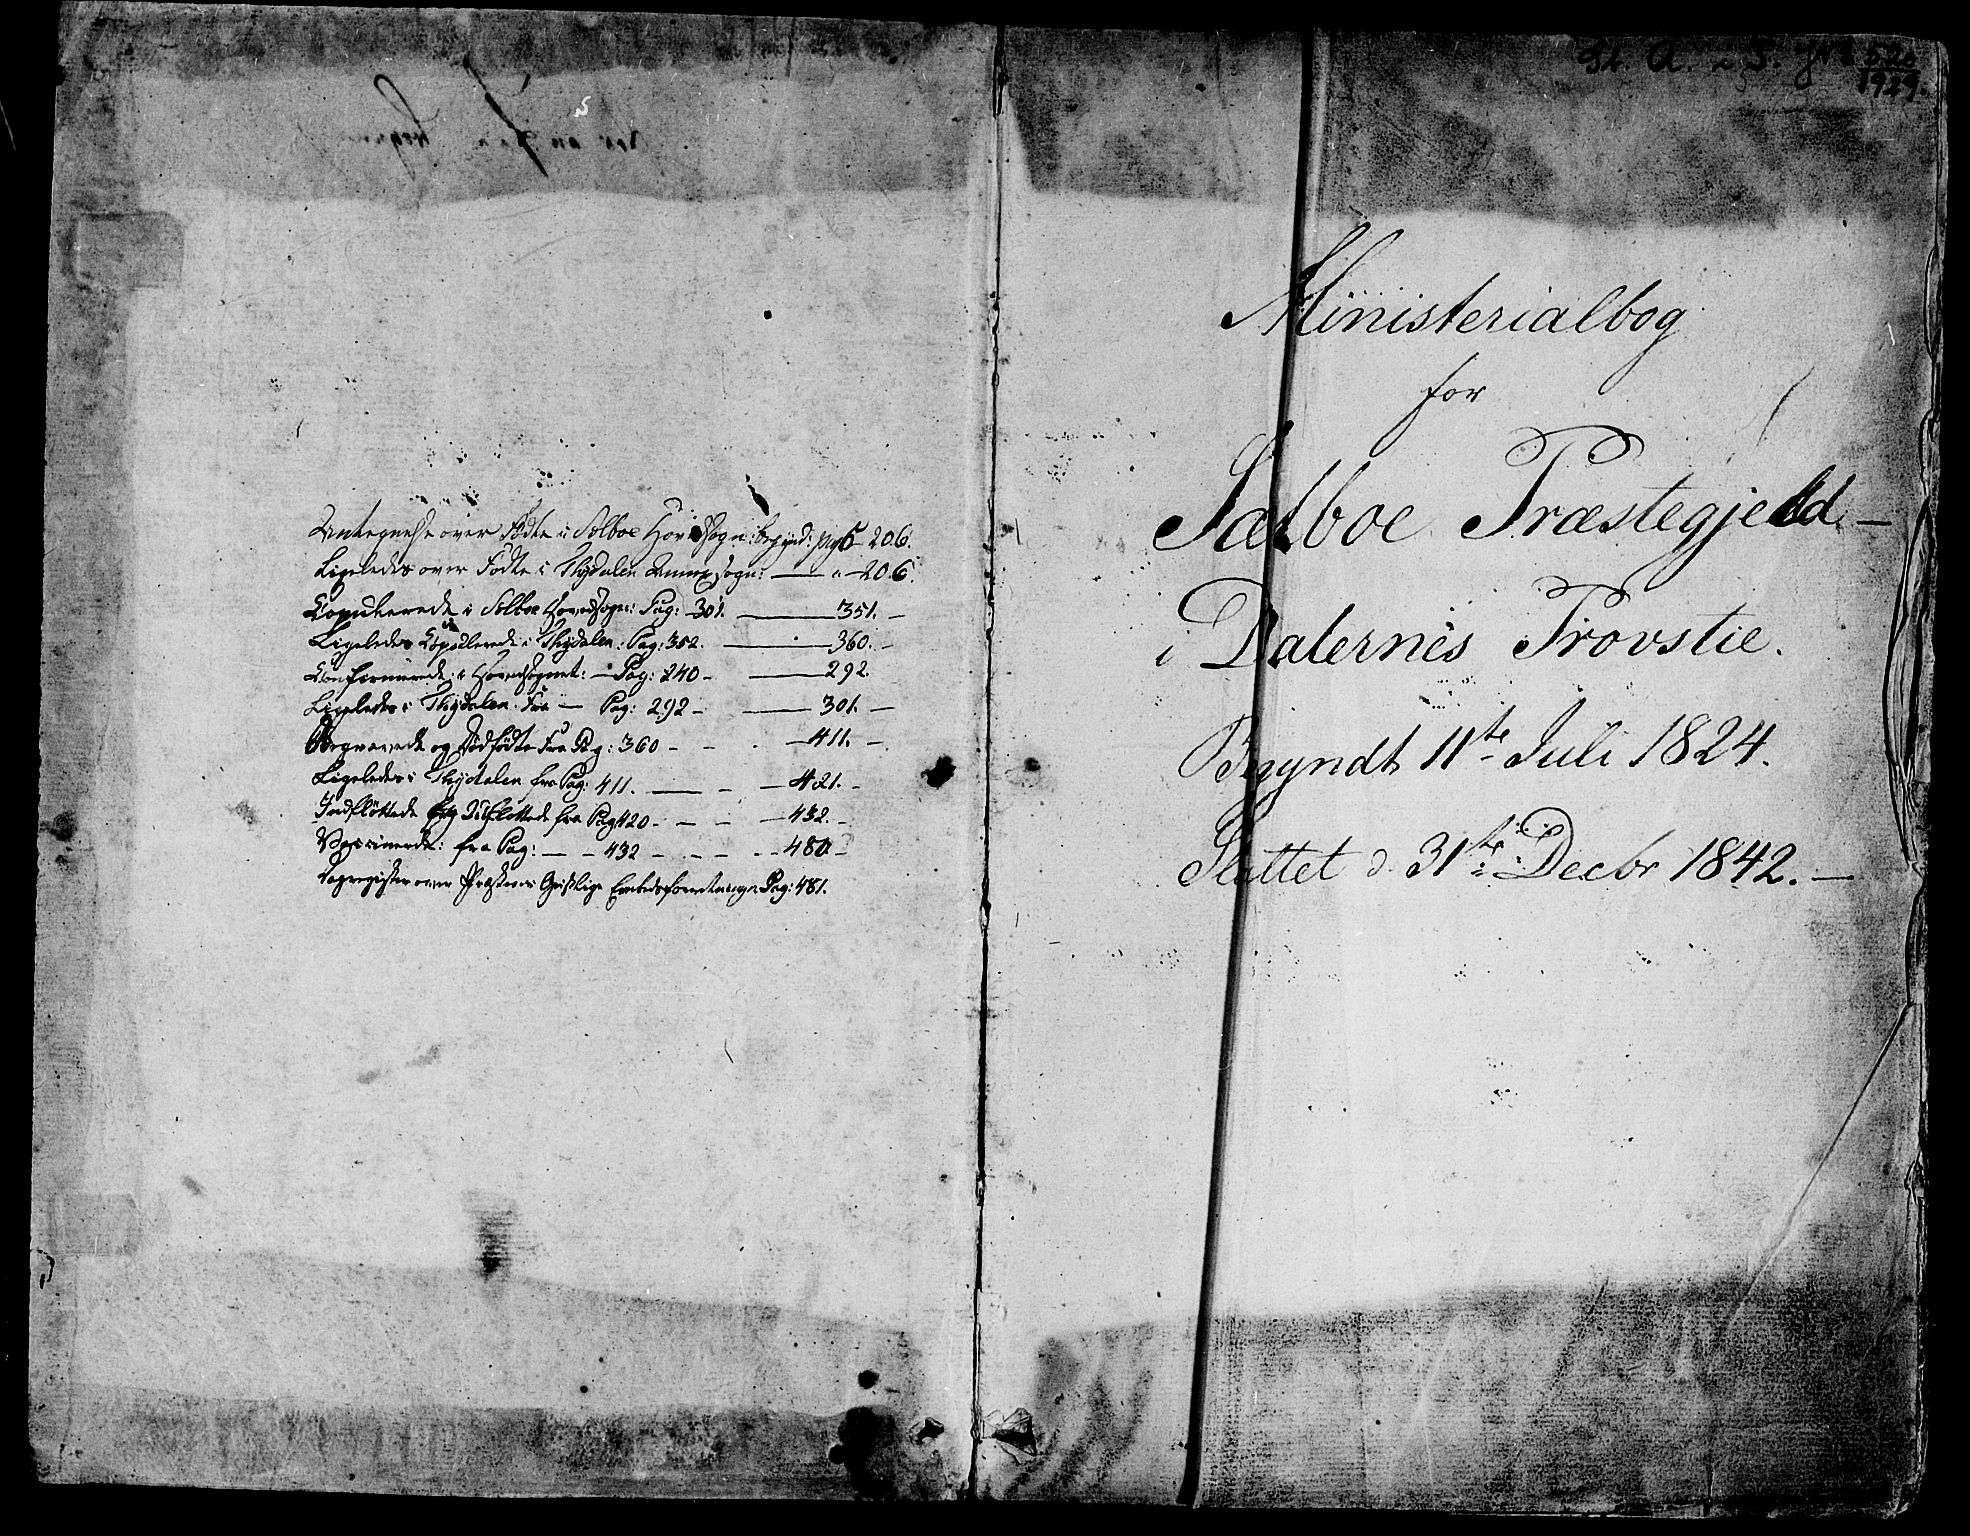 Antegnelse over Födte i Selboe Hovedsogn: begynd: pag 5 - 206.
Ligeledes over Födte i Thydalen Annexsogn: — " — 206.
Copulerede i Selboe Hovedsogn: Pag: 301. — 351. —
Ligeledes Copulerede i Thydalen: Pag: 352. — 360. —
Confirmerede i Hovedsognet: — Pag: 240 — 292.
Ligeledes i Thydalen fra — Pag: 292 — 301. —
Begravede og Dödfödte fra Pag: 360 — 411. —
Ligeledes i Thydalen fra Pag: 411. — 421. —
Indflöttede og Udflöttede fra Pag 420 — 432. —
Vaccinerede: fra Pag: — 432 — 480 —
Dagregister over Præstens Geistlige Embedsforretninger Pag: 481.
St. A. i 520/1929.
Ministerialbog
for
Sælboe Præstegjeld. —
i Dalernes Provstie.
Begyndt 11te Juli 1824.
Sluttet d. 31te Decbr 1842. —